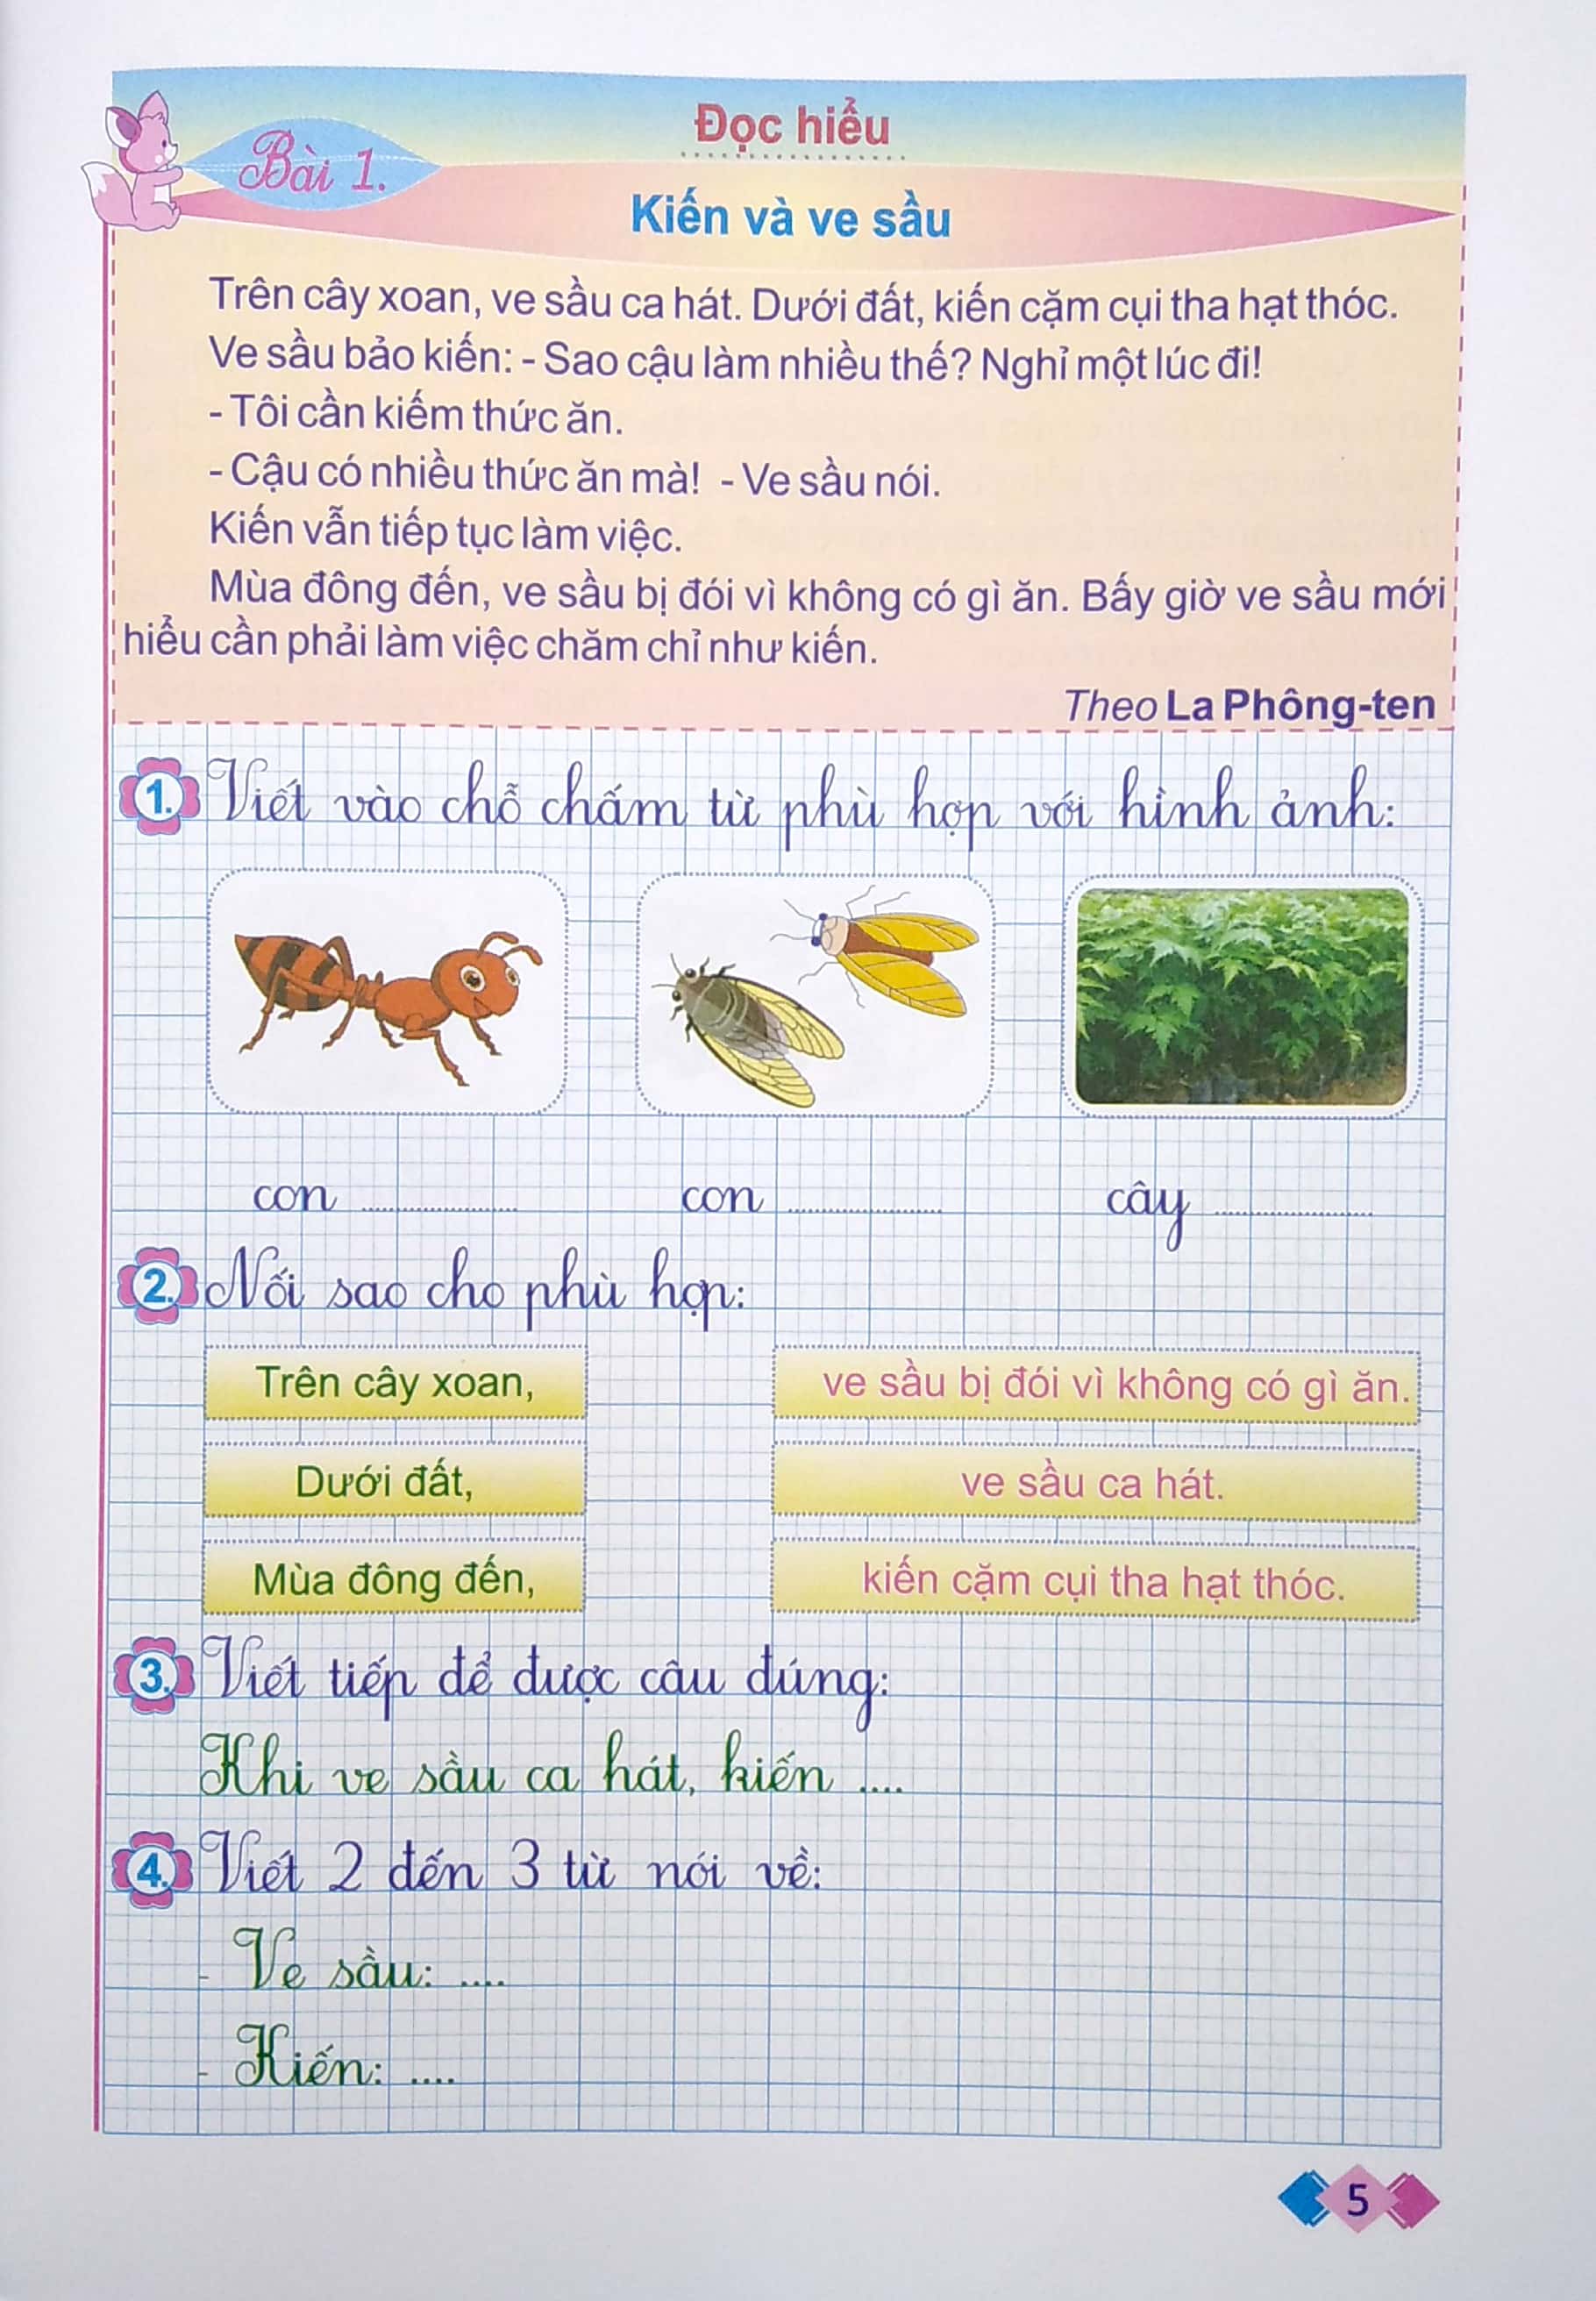 Đọc hiểu
Bài 1.
Kiến và ve sầu
Trên cây xoan, ve sầu ca hát. Dưới đất, kiến cặm cụi tha hạt thóc.
Ve sầu bảo kiến: - Sao cậu làm nhiều thế? Nghỉ một lúc đi!
- Tôi cần kiếm thức ăn.
- Cậu có nhiều thức ăn mà! - Ve sầu nói.
Kiến vẫn tiếp tục làm việc.
Mùa đông đến, ve sầu bị đói vì không có gì ăn. Bấy giờ ve sầu mới
hiểu cần phải làm việc chăm chỉ như kiến.
Theo La Phông-ten
1. Viết vào chỗ chấm từ phù hợp với hình ảnh:
con .......... con .......... cây ..........
2. Nối sao cho phù hợp:
Trên cây xoan, ve sầu bị đói vì không có gì ăn.
Dưới đất, ve sầu ca hát.
Mùa đông đến, kiến cặm cụi tha hạt thóc.
3. Viết tiếp để được câu đúng:
Khi ve sầu ca hát, kiến ....
4. Viết 2 đến 3 từ nói về:
- Ve sầu: ....
- Kiến: ....
5